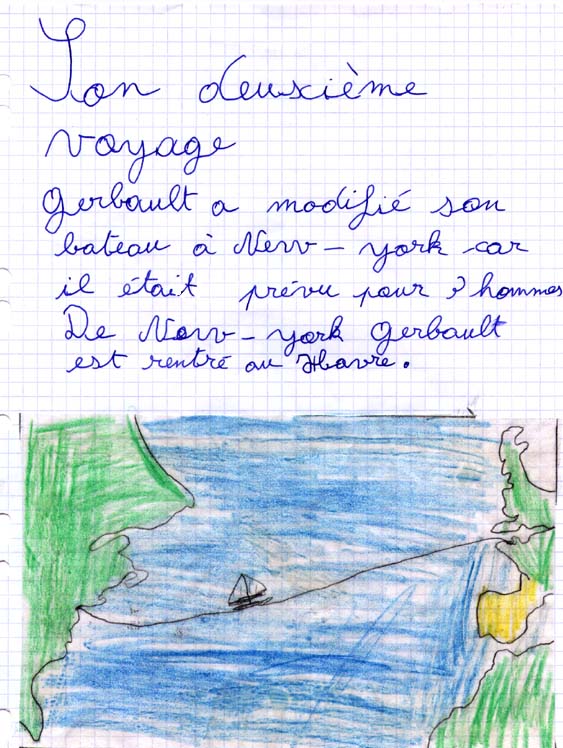 Son deuxième
voyage
Gerbault a modifié son
bateau à New-york car
il était prévu pour hommes
De New-york Gerbault
est rentré au Havre.